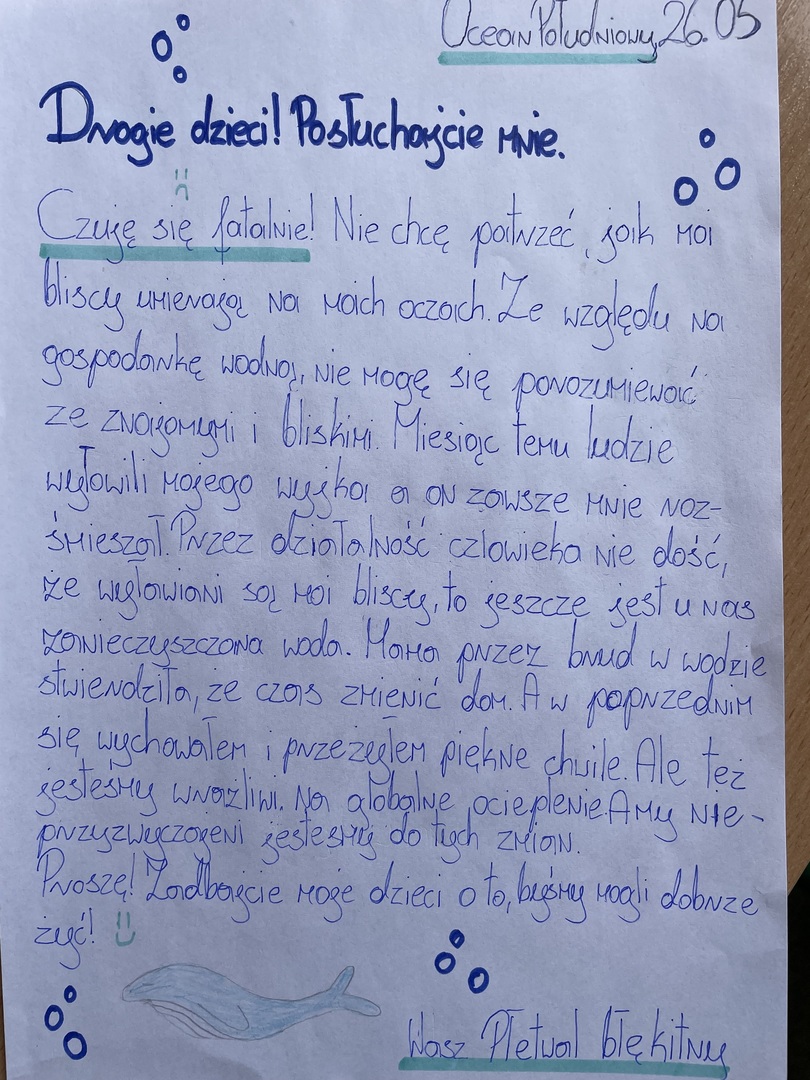 Ocean Południowy, 26.05
Drogie dzieci! Posłuchajcie mnie.
Czuję się fatalnie! Nie chcę patrzeć, jak moi
bliscy umierają na moich oczach. Ze względu na
gospodarkę wodną, nie mogę się porozumiewać
ze znajomymi i bliskimi. Miesiąc temu ludzie
wyłowili mojego wujka a on zawsze mnie roz-
śmieszał. Przez działalność człowieka nie dość,
że wyławiani są moi bliscy, to jeszcze jest u nas
zanieczyszczona woda. Mama przez brud w wodzie
stwierdziła, że czas zmienić dom. A w poprzednim
się wychowałem i przeżyłem piękne chwile. Ale też
jesteśmy wrażliwi. Na globalne ocieplenie. A my nie-
przyzwyczajeni jesteśmy do tych zmian.
Proszę! Zadbajcie moje dzieci o to, byśmy mogli dobrze
żyć!
Wasz Płetwal błękitny